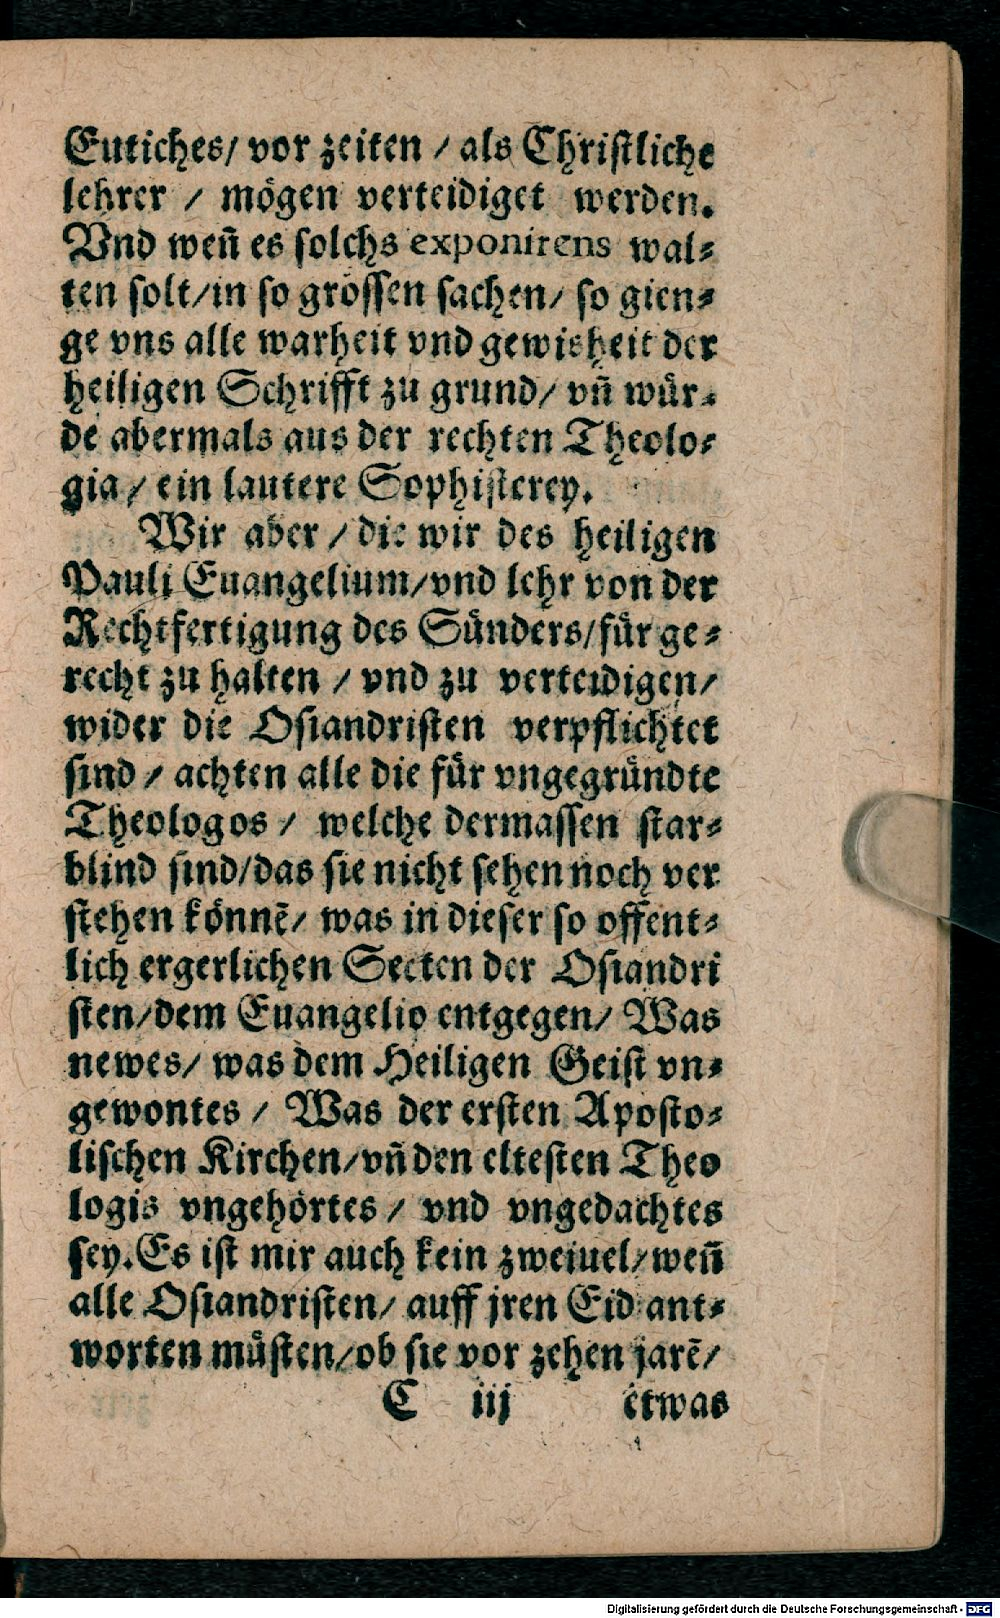 Eutiches/ vor zeiten / als Christliche
lehrer / mögen verteidiget werden.
Vnd weñ es solchs exponirens wal⸗
ten solt/in so grossen sachen/ so gien⸗
ge vns alle warheit vnd gewisheit der
heiligen Schrifft zu grund/ vñ wür⸗
de abermals aus der rechten Theolo⸗
gia / ein lautere Sophisterey.
Wir aber / die wir des heiligen
Pauli Euangelium/vnd lehr von der
Rechtfertigung des Sünders/für ge⸗
recht zu halten / vnd zu verteidigen/
wider die Osiandristen verpflichtet
sind / achten alle die für vngegründte
Theologos / welche dermassen star⸗
blind sind/das sie nicht sehen noch ver
stehen könnẽ/ was in dieser so offent⸗
lich ergerlichen Secten der Osiandri
sten/dem Euangelio entgegen/ Was
newes/ was dem Heiligen Geist vn⸗
gewontes / Was der ersten Aposto⸗
lischen Kirchen/vñ den eltesten Theo
logis vngehörtes / vnd vngedachtes
sey.Es ist mir auch kein zweiuel/weñ
alle Osiandristen/ auff jren Eid ant⸗
worten müsten/ob sie vor zehen jarẽ/
C iij etwas
Digitalisierung gefördert durch die Deutsche Forschungsgemeinschaft - DFG